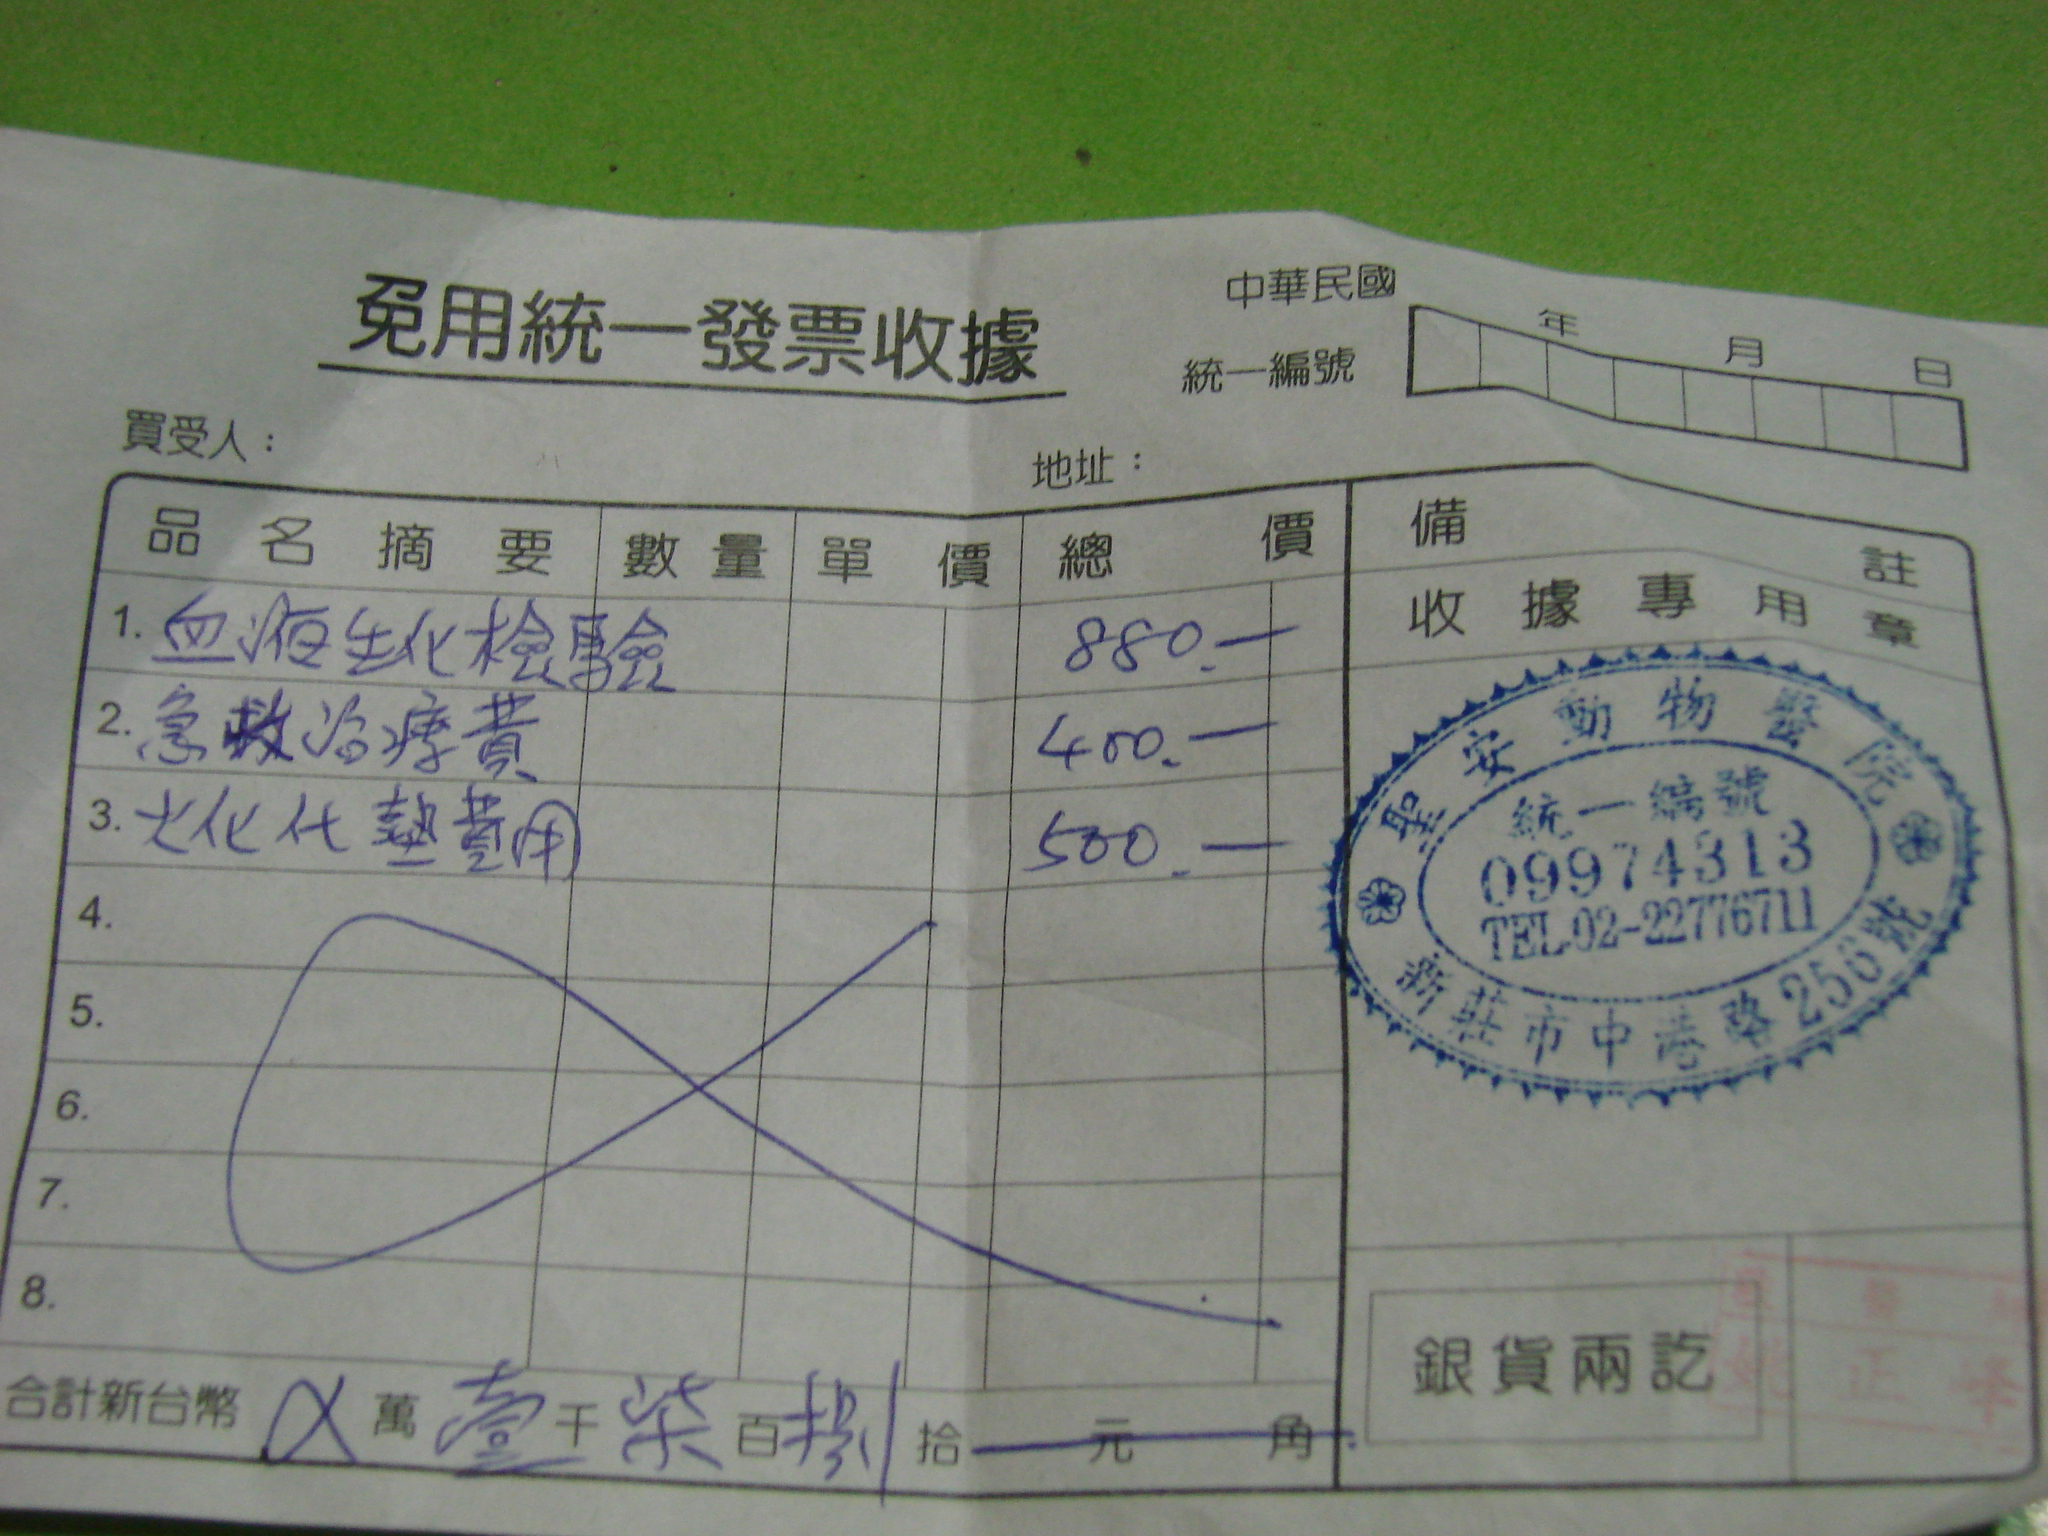 免用統一發票收據
中華民國 年 月 日
統一編號
買受人：
地址：
品名摘要 數量 單價 總價 備註
收據專用章
1. 血液生化檢驗 880.—
2. 急救治療費 400.—
3. 火化代墊費用 500.—
4.
5.
6.
7.
8.
聖安動物醫院
統一編號
09974313
TEL.02-22776711
新莊市中港路256號
合計新台幣 萬壹千柒百捌拾 元 角
銀貨兩訖